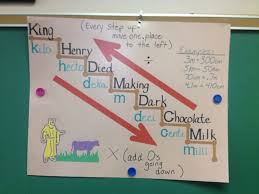 King
kilo
(Every step up-
move one place
to the left)
Henry
hecto
÷
Examples:
3m = 300cm
5m =
Died
deka
Making
m
Dark
deci
Chocolate
centi
Milk
milli
X (add 0s
going
down)